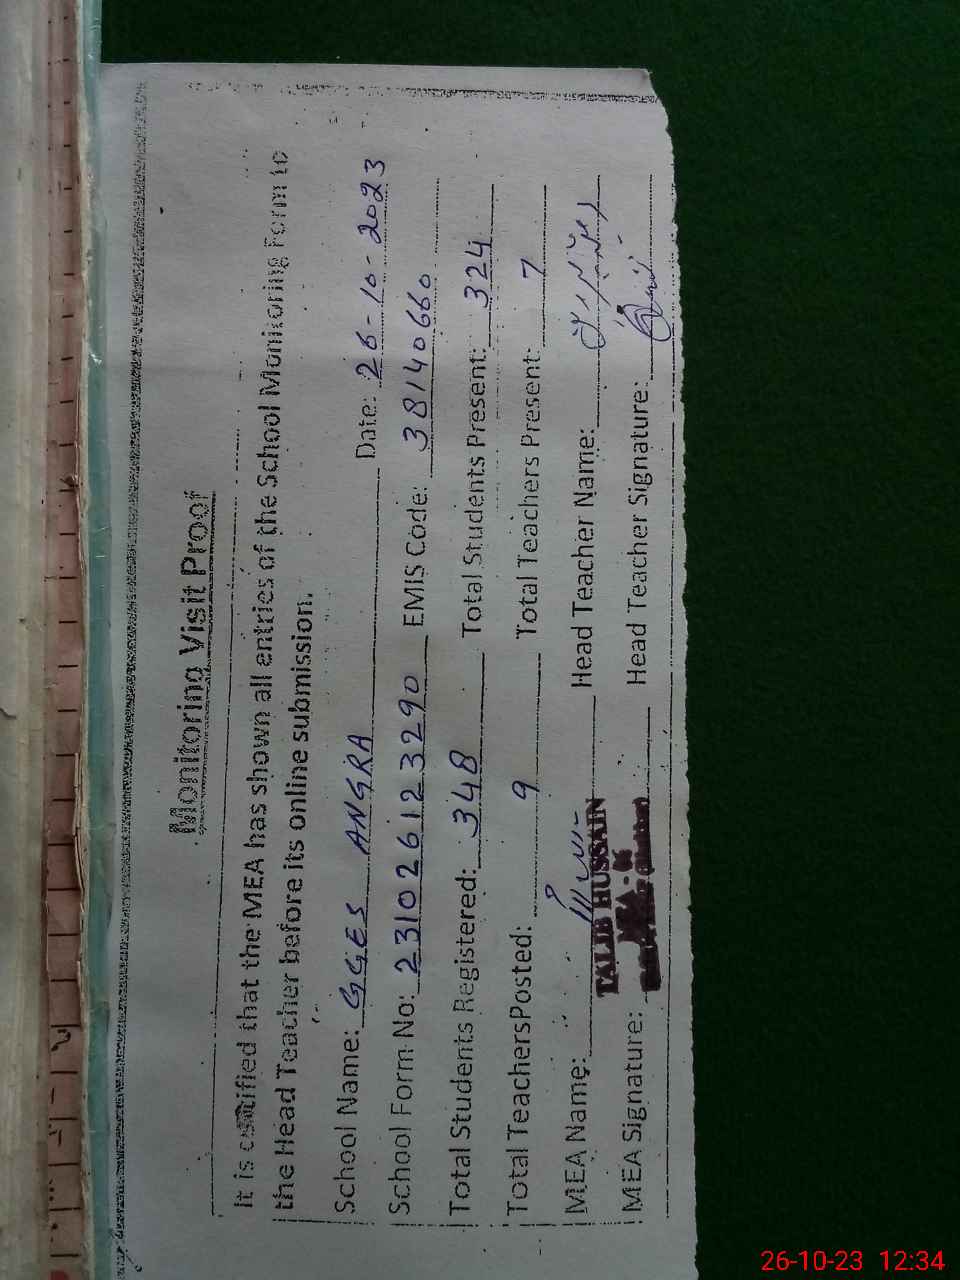 Monitoring Visit Proof
It is certified that the MEA has shown all entries of the School Monitoring Form to
the Head Teacher before its online submission.
School Name: GGES ANGRA Date: 26-10-2023
School Form No: 231026123290 EMIS Code: 38140660
Total Students Registered: 348 Total Students Present: 324
Total TeachersPosted: 9 Total Teachers Present: 7
MEA Name: Head Teacher Name:
TALIB HUSSAIN
MEA - 06
MEA Signature: Head Teacher Signature:
26-10-23 12:34